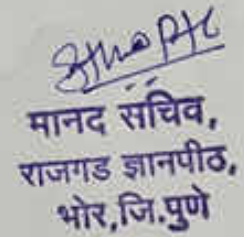 मानद सचिव,
राजगड ज्ञानपीठ,
भोर,जि.पुणे